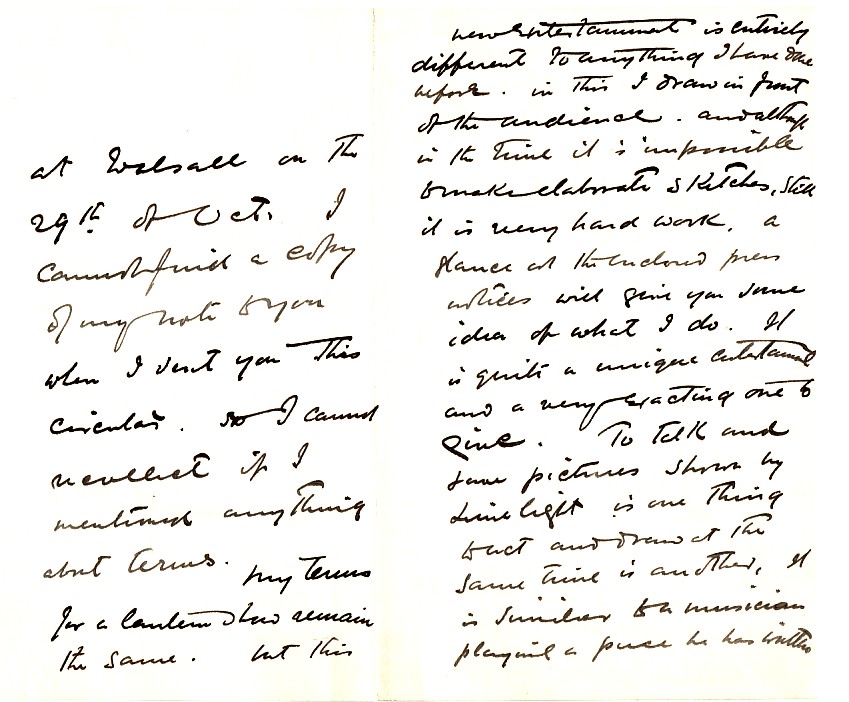 at Walsall on the
29th of Oct. I
cannot find a copy
of my note to you
when I sent you this
circular. so I cannot
recollect if I
mentioned anything
about terms. my terms
for a lantern show remain
the same. but this
new entertainment is entirely
different to anything I have done
before. in this I draw in front
of the audience. and although
in the time it is impossible
to make elaborate sketches, still
it is very hard work. a
glance at the enclosed press
notices will give you some
idea of what I do. It
is quite a unique entertainment
and a very exacting one to
give. To talk and
have pictures shown by
limelight is one thing
to act and draw at the
same time is another, it
is similar to a musician
playing a piece he has written